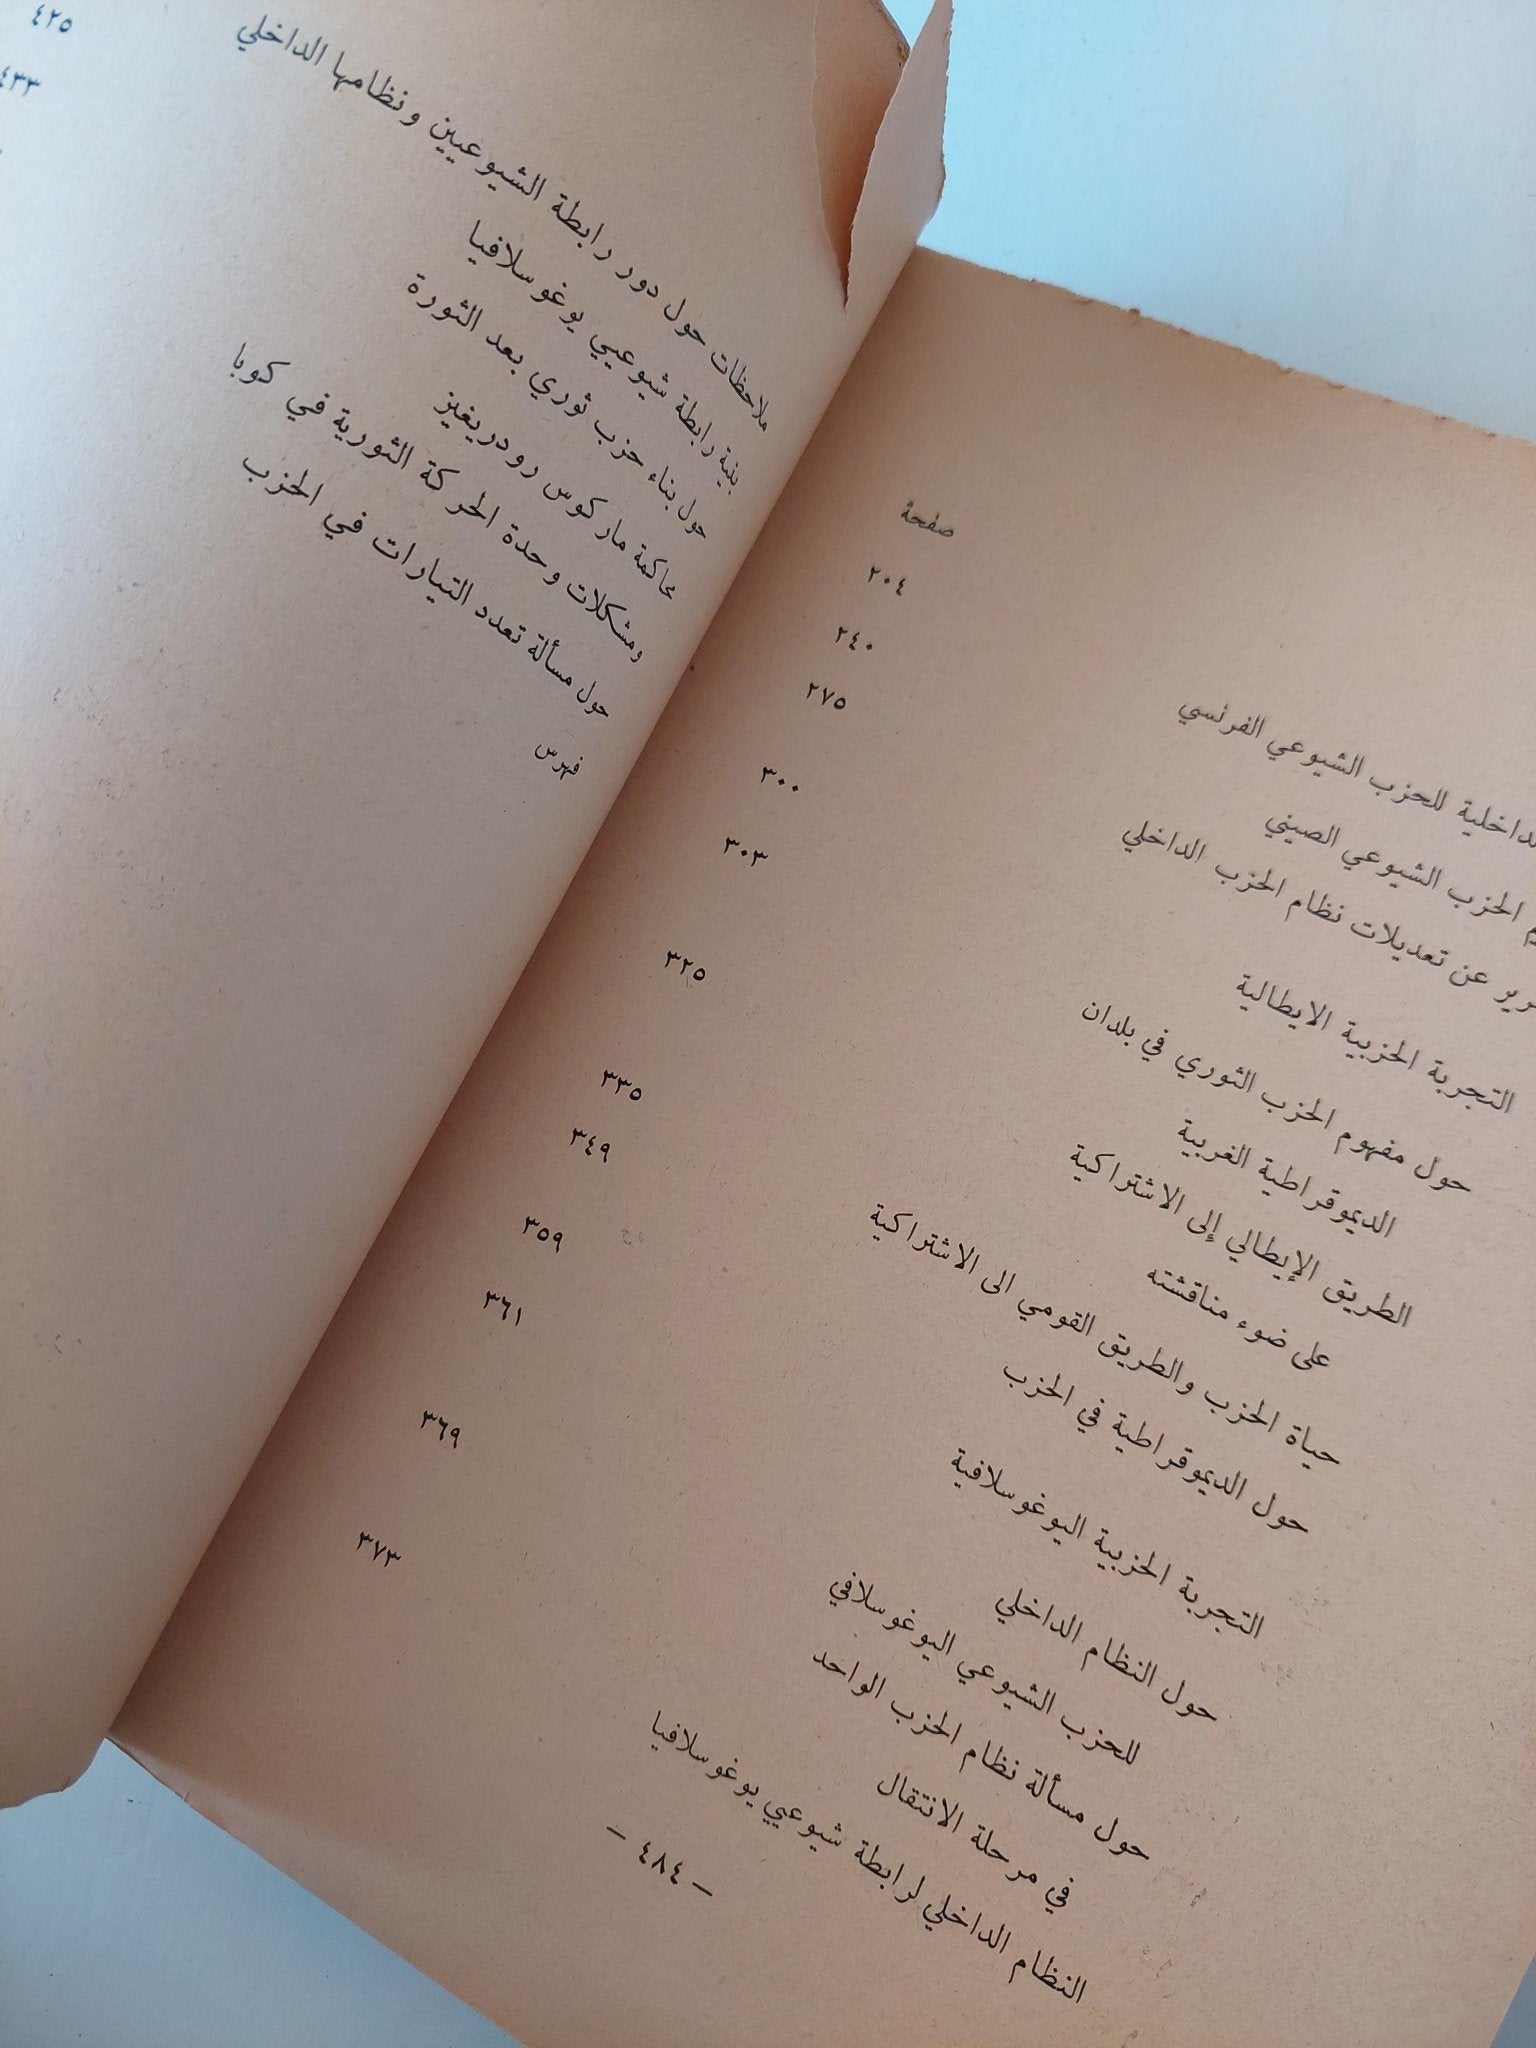 صفحة
لداخلية للحزب الشيوعي الفرنسي
٢٠٤
الحزب الشيوعي الصيني
٢٤٠
عن تعديلات نظام الحزب الداخلي
٢٧٥
التجربة الحزبية الايطالية
حول مفهوم الحزب الثوري في بلدان
الديموقراطية الغربية
٣٠٠
الطريق الإيطالي إلى الاشتراكية
على ضوء مناقشته
٣٠٣
حياة الحزب والطريق القومي الى الاشتراكية
٣٢٥
حول الديموقراطية في الحزب
٣٣٥
التجربة الحزبية اليوغوسلافية
٣٤٩
حول النظام الداخلي
للحزب الشيوعي اليوغوسلافي
٣٥٩
حول مسألة نظام الحزب الواحد
٣٦١
في مرحلة الانتقال
٣٦٩
النظام الداخلي لرابطة شيوعيي يوغوسلافيا
٣٧٣
– ٤٨٤ –
ملاحظات حول دور رابطة الشيوعيين ونظامها الداخلي
بنية رابطة شيوعيي يوغوسلافيا
حول بناء حزب ثوري بعد الثورة
محاكمة ماركوس رودريغيز
ومشكلات وحدة الحركة الثورية في كوبا
٤٢٥
حول مسألة تعدد التيارات في الحزب
٤٣٣
فهرس